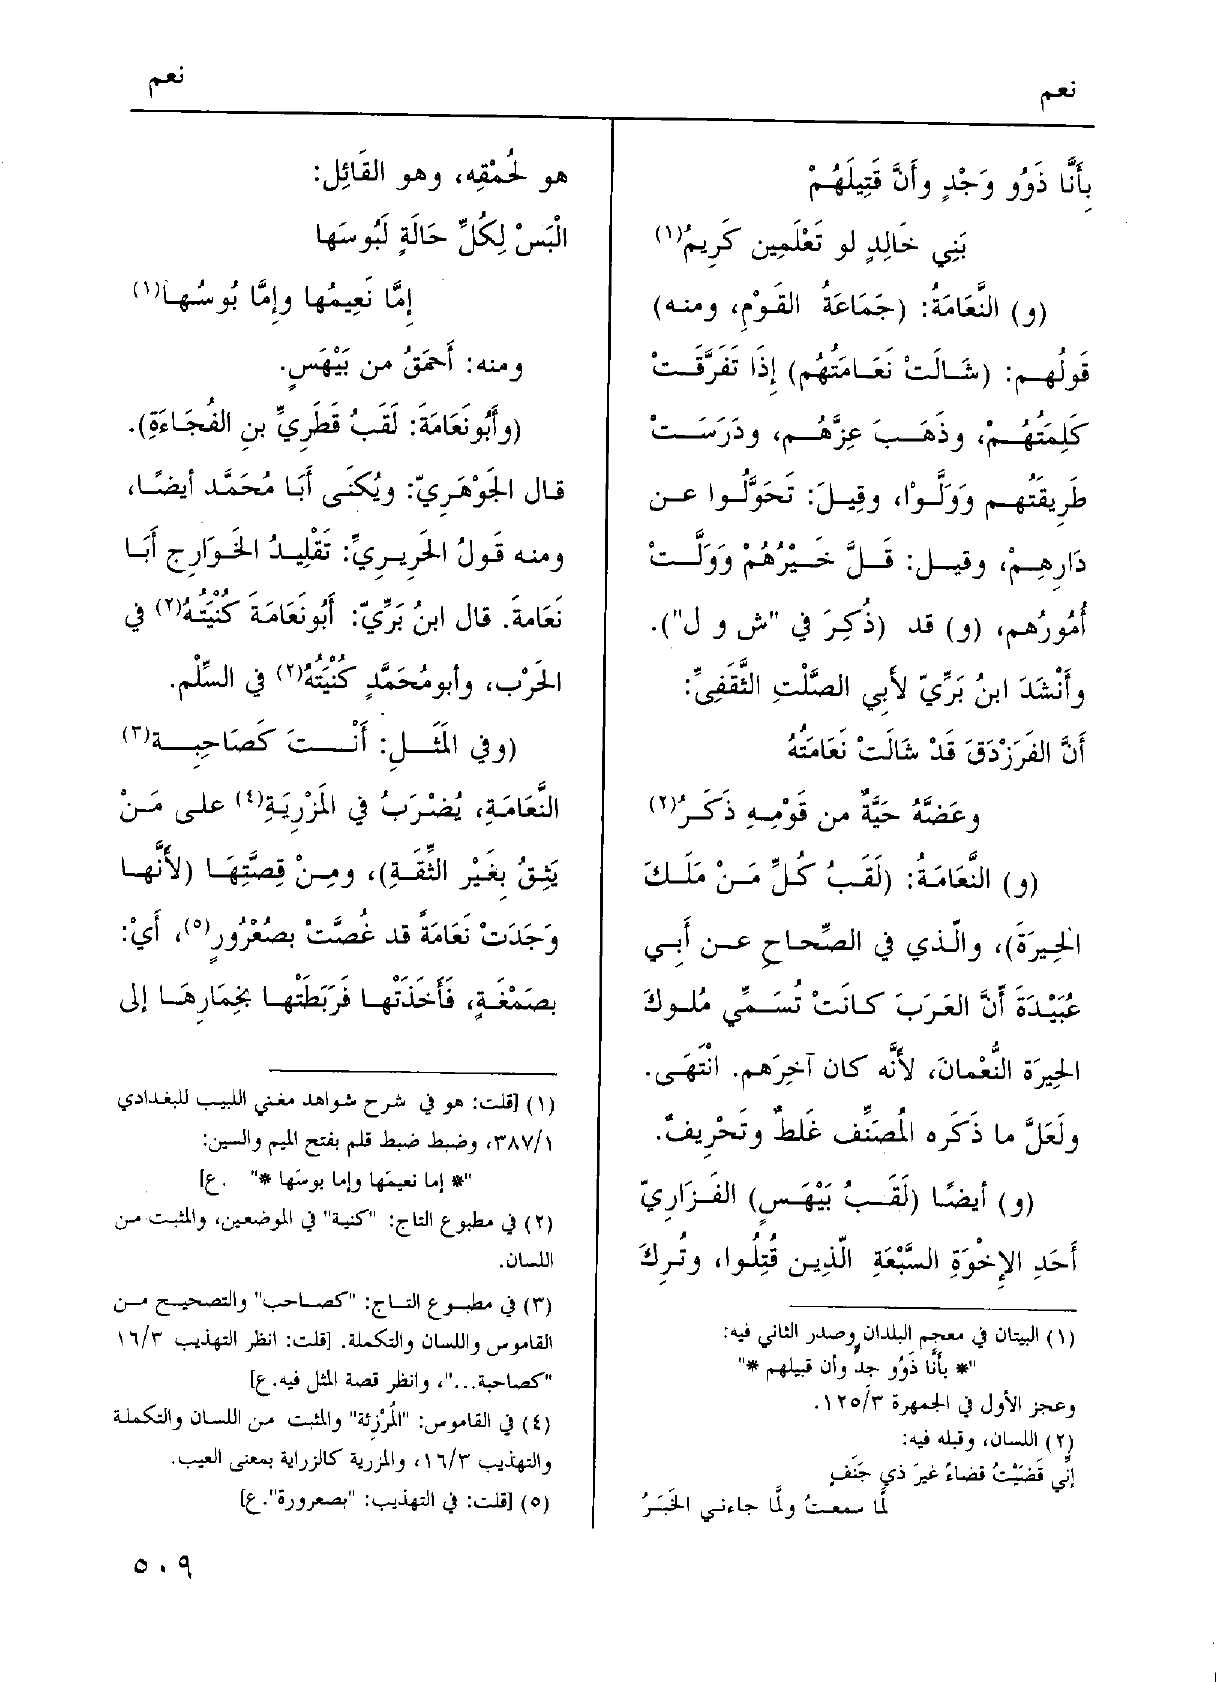 نعم
نعم
بِأَنَّا ذَوُو وَجْدٍ وأَنَّ قَتِيلَهُمْ
بَنِي خَالِدٍ لو تَعْلَمِين كَرِيمُ(١)
(و) النَّعَامَةُ: (جَمَاعَةُ القَوْمِ، ومنه)
قَولُهم: (شَالَتْ نَعَامَتُهُم) إِذَا تَفَرَّقَتْ
كَلِمَتُهُمْ، وذَهَبَ عِزُّهُم، ودَرَسَتْ
طَرِيقَتُهم وَوَلَّوْا، وقِيلَ: تَحَوَّلُوا عن
دَارِهِمْ، وقيل: قَلَّ خَيْرُهُمْ وَوَلَّتْ
أُمُورُهم، (و) قد (ذُكِرَ في "ش و ل").
وأَنْشَدَ ابنُ بَرِّيّ لأَبِي الصَّلْتِ الثَّقَفِيِّ:
أَنَّ الفَرَزْدَقَ قَدْ شَالَتْ نَعَامَتُهُ
وعَضَّهُ حَيَّةٌ من قَوْمِهِ ذَكَرُ(٢)
(و) النَّعَامَةُ: (لَقَبُ كُلِّ مَنْ مَلَكَ
الحِيرَةَ)، والّذي في الصِّحاحِ عن أَبِي
عُبَيْدَةَ أَنَّ العَرَبَ كانَتْ تُسَمِّي مُلوكَ
الحِيرَة النُّعْمانَ، لأَنَّه كان آخِرَهم. انْتَهَى.
ولَعَلَّ ما ذَكَره المُصَنِّف غَلَطٌ وتَحْرِيفٌ.
(و) أيضًا (لَقَبُ بَيْهَسٍ) الفَزَارِيّ
أَحَدِ الإِخْوَةِ السَّبْعَةِ الّذِين قُتِلُوا، وتُرِكَ
(١) البيتان في معجم البلدان وصدر الثاني فيه:
"* بأنَّا ذَوُو جدٍّ وأن قبيلهم *"
وعجز الأول في الجمهرة ١٢٥/٣.
(٢) اللسان، وقبله فيه:
إنّي قَضَيْتُ قضاءً غيرَ ذي جَنَفٍ
لمّا سمعتُ ولمّا جاءني الخَبَرُ
هو لحُمْقِه، وهو القَائِل:
الْبَسْ لِكُلِّ حَالَةٍ لَبُوسَها
إِمَّا نَعِيمُها وإِمَّا بُوسُها(١)
ومنه: أَحمَقُ من بَيْهَسٍ.
(وأَبُونَعَامَة: لَقَبُ قَطَرِيِّ بن الفُجَاءَةِ).
قال الجَوْهَرِيّ: ويُكنَى أَبَا مُحَمَّد أيضًا،
ومنه قَولُ الحَرِيرِيِّ: تَقْلِيدُ الخَوَارِجِ أَبَا
نَعَامةَ. قال ابنُ بَرِّيّ: أَبُونَعَامَةَ كُنْيَتُهُ(٢) في
الحَرْب، وأبومُحَمَّدٍ كُنْيَتُهُ(٢) في السِّلْم.
(وفي المَثَلِ: أَنْتَ كَصَاحِبةِ(٣)
النَّعَامَةِ، يُضْرَبُ في المَزْرِيَةِ(٤) على مَنْ
يَثِقُ بغَيْرِ الثِّقَةِ)، ومِنْ قِصَّتِهَا (لأَنَّها
وَجَدَتْ نَعَامَةً قد غُصَّتْ بصُعْرُورٍ(٥)، أَيْ:
بصَمْغَةٍ، فَأَخَذَتْها فَرَبَطَتْها بخِمَارِهَا إلى
(١) [قلت: هو في شرح شواهد مغني اللبيب للبغدادي
٣٨٧/١، وضبط ضبط قلم بفتح الميم والسين:
"* إما نعيمَها وإما بوسَها *" .ع]
(٢) في مطبوع التاج: "كنية" في الموضعين، والمثبت من
اللسان.
(٣) في مطبوع التاج: "كصاحب" والتصحيح من
القاموس واللسان والتكملة. [قلت: انظر التهذيب ١٦/٣
"كصاحبة..."، وانظر قصة المثل فيه.ع]
(٤) في القاموس: "المُرْزِئة" والمثبت من اللسان والتكملة
والتهذيب ١٦/٣، والمزرية كالزراية بمعنى العيب.
(٥) [قلت: في التهذيب: "بصعرورة".ع]
٥٠٩